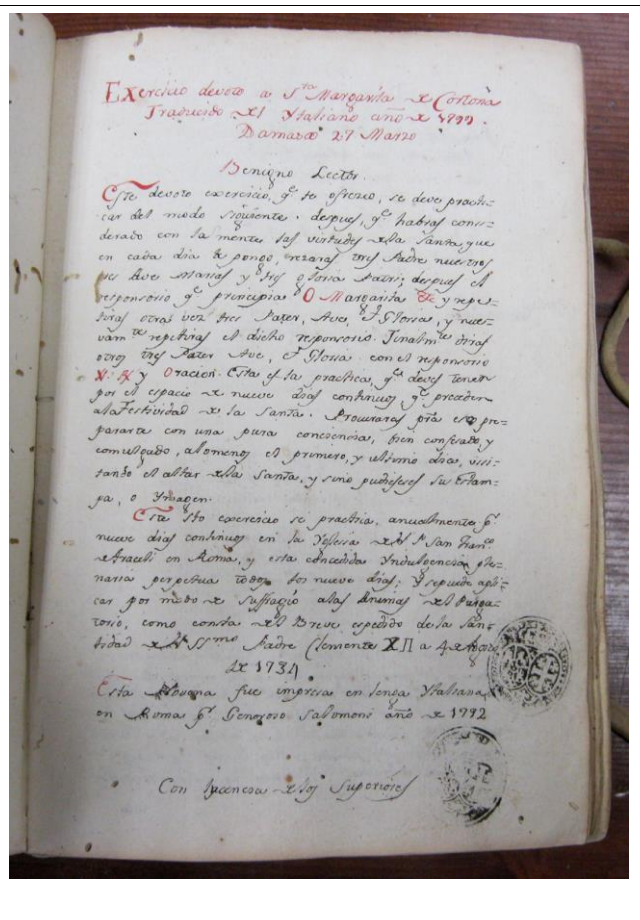 Exercicio devoto a Sta Margarita de Cortona
Traducido del Ytaliano año de 1799.
Damasco 27 Marzo
Benigno Lector.
Este devoto exercicio, qe te ofrezco, se deve practi=
car del modo siguiente. despues, qe habras consi=
derado con la mente las virtudes de la Santa, que
en cada dia te pongo, rezaras tres Padre nuestros
tres Ave Marias y tres gloria Patri; despues el
responsorio qe principia O Margarita &c y repe=
tiras otra vez tres Pater, Ave, et Gloria, y nue=
vamte repetiras el dicho responsorio. Finalmte diras
otros tres Pater Ave, et Gloria con el responsorio
y Oracion. Esta es la practica, qe deves tener
por el espacio de nueve dias continuos qe preceden
ala Festividad de la Santa. Procuraras pra eso pre=
pararte con una pura conciencia, bien confesado, y
comulgado, alomenos el primero, y ultimo dia, visi=
tando el altar de la Santa, y sino pudieses su Estam=
pa, o Ymagen.
Este sto exercicio se practica, anualmente pr
nueve dias continuos en la Yglesia de N. P. San Franco
de Araceli en Roma, y esta concedida Yndulgencia ple=
naria perpetua todos los nueve dias; y se puede apli=
car por modo de suffragio alas Animas del Purga=
torio, como consta del Breve espedido de la San=
tidad de N. SSmo Padre Clemente XII a 4 de Agosto
de 1734
Esta Novena fue impresa en lenga Ytaliana
en Roma pr Generoso Salomoni año de 1792
Con licencia de los Superiores